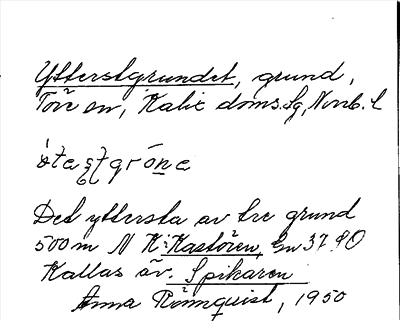 Ytterstgrundet, grund,
Töre sn, Kalix doms.sg, Norrb. l
Det yttersta av tre grund
500 m N K: Kastören,
Kallas äv. Spikaren
Anna Rönnquist, 1950